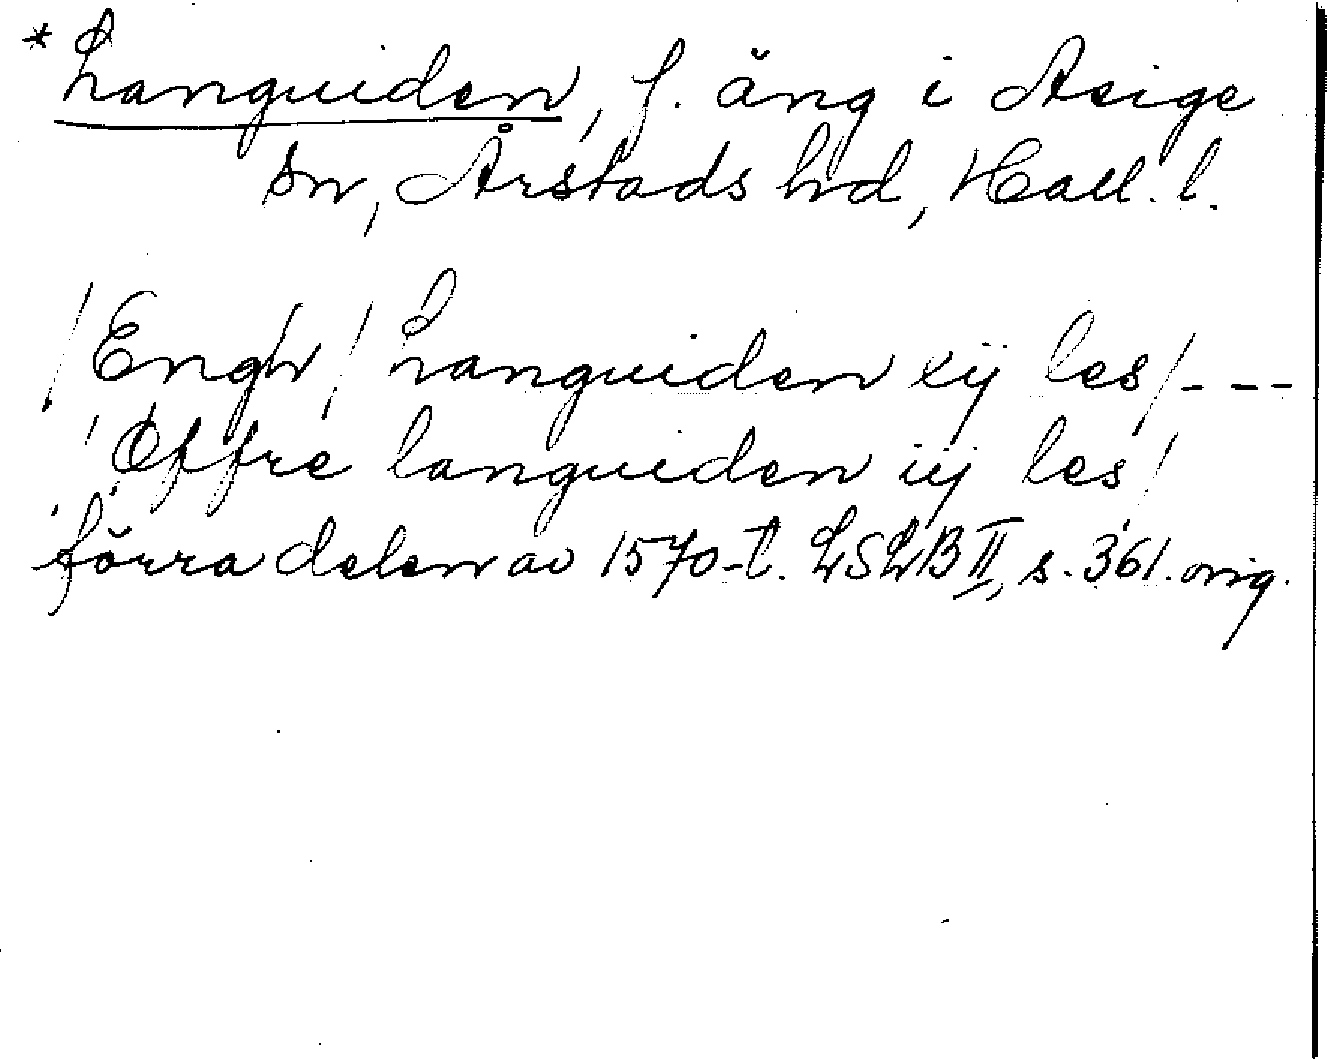 * Languiden, f. äng i Asige
sn, Årstads hd, Hall. l.
/Engh/ Languiden xij les/---
/Øffre languiden iij les/
förra delen av 1570-t. LSLB II, s. 361. orig.